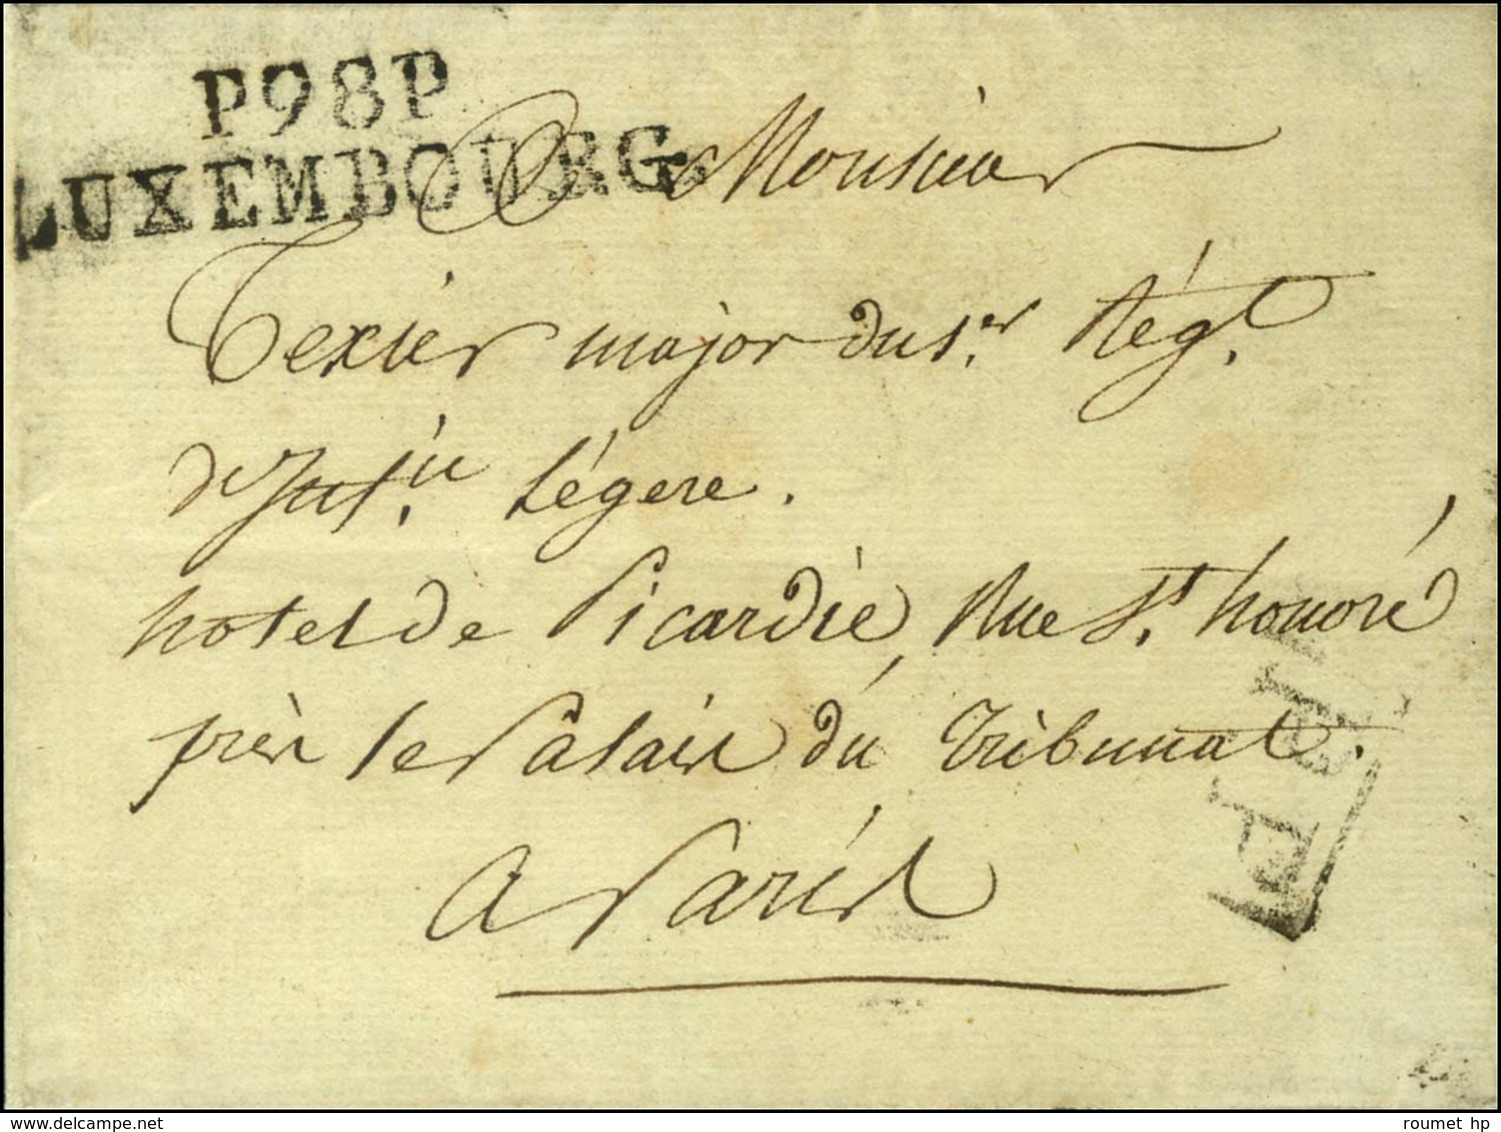 P98P
LUXEMBOURG
A Monsieur
Texier major du 1.er Régt.
d'Inf.ie Légere.
hotel de Picardie, Rue St. honoré,
près le Palais du Tribunat.
A Paris
P.P.P.P.
www.delcampe.net
roumet hp